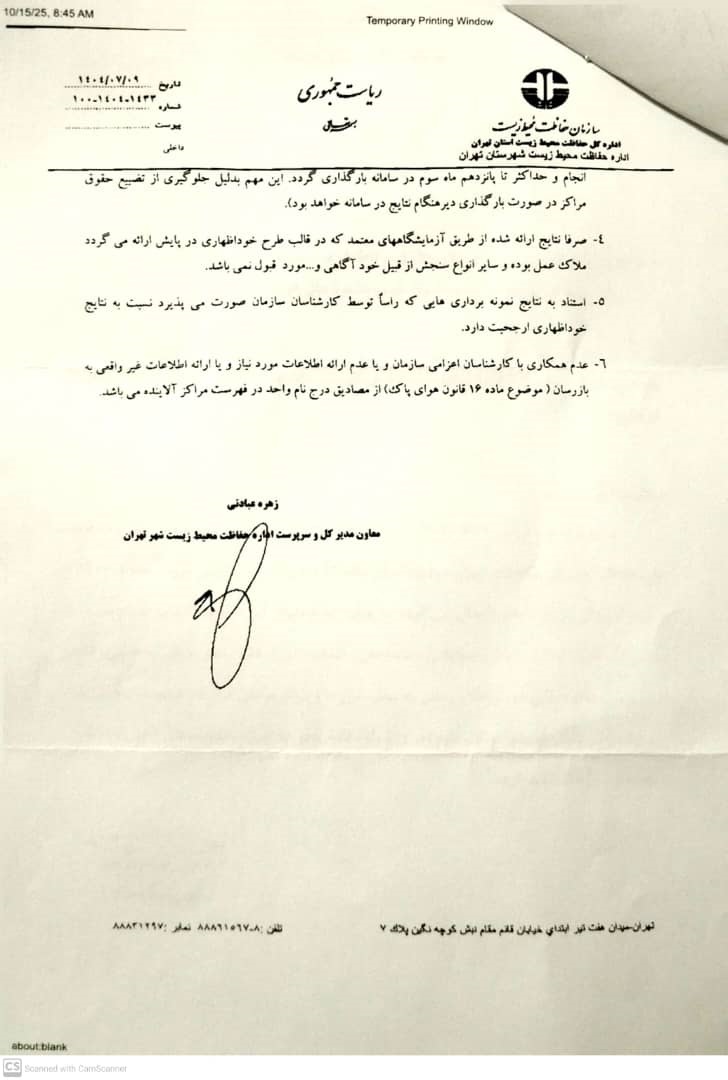 10/15/25, 8:45 AM
Temporary Printing Window
ریاست جمهوری
سازمان حفاظت محیط زیست
اداره کل حفاظت محیط زیست استان تهران
اداره حفاظت محیط زیست شهرستان تهران
تاریخ ۱۴۰۴/۰۷/۰۹
شماره ۱۰۰-۱۴۰۴-۱۴۳۳
پیوست
داخلی
انجام و حداکثر تا پانزدهم ماه سوم در سامانه بارگذاری گردد. این مهم بدلیل جلوگیری از تضییع حقوق
مراکز در صورت بارگذاری دیرهنگام نتایج در سامانه خواهد بود).
۴- صرفا نتایج ارائه شده از طریق آزمایشگاههای معتمد که در قالب طرح خوداظهاری در پایش ارائه می گردد
ملاک عمل بوده و سایر انواع سنجش از قبیل خود آگاهی و...مورد قبول نمی باشد.
۵- استناد به نتایج نمونه برداری هایی که راساً توسط کارشناسان سازمان صورت می پذیرد نسبت به نتایج
خوداظهاری ارجحیت دارد.
۶- عدم همکاری با کارشناسان اعزامی سازمان و یا عدم ارائه اطلاعات مورد نیاز و یا ارائه اطلاعات غیر واقعی به
بازرسان ( موضوع ماده ۱۶ قانون هوای پاک) از مصادیق درج نام واحد در فهرست مراکز آلاینده می باشد.
زهره عبادتی
معاون مدیر کل و سرپرست اداره حفاظت محیط زیست شهر تهران
تهران-میدان هفت تیر ابتدای خیابان قائم مقام نبش کوچه نگین پلاک ۷
تلفن :۸-۸۸۸۶۱۵۶۷ نمابر :۸۸۸۳۱۲۹۷
about:blank
CS Scanned with CamScanner